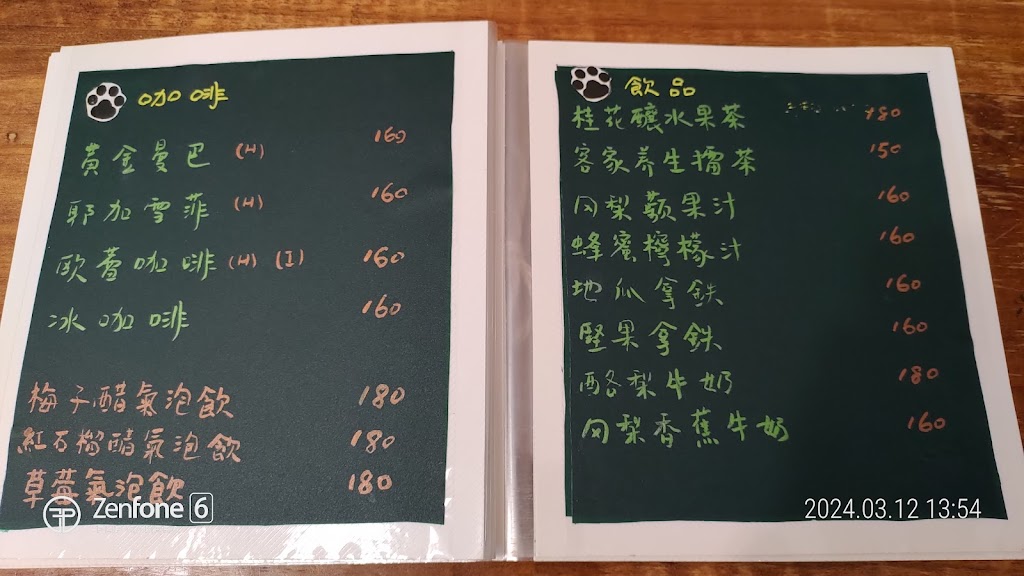 咖啡
黃金曼巴 (H) 160
耶加雪菲 (H) 160
歐蕾咖啡 (H) (I) 160
冰咖啡 160
梅子醋氣泡飲 180
紅石榴醋氣泡飲 180
草莓氣泡飲 180
Zenfone 6
飲品
桂花釀水果茶 180
客家养生擂茶 150
冈梨蘋果汁 160
蜂蜜檸檬汁 160
地瓜拿鉄 160
堅果拿鉄 160
酪梨牛奶 180
冈梨香蕉牛奶 160
2024.03.12 13:54